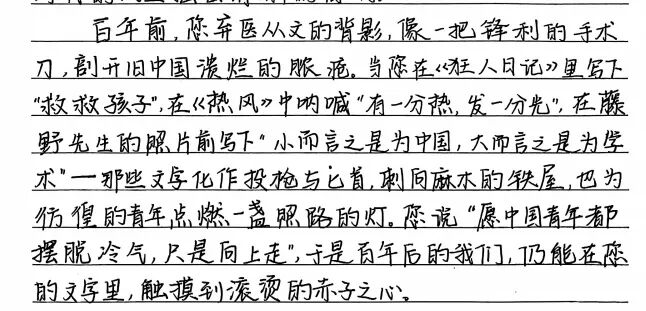 百年前,您弃医从文的背影,像一把锋利的手术
刀,剖开旧中国溃烂的脓疮。当您在《狂人日记》里写下
“救救孩子”,在《热风》中呐喊“有一分热,发一分光”,在藤
野先生的照片前写下“小而言之是为中国,大而言之是为学
术”一那些文字化作投枪与匕首,刺向麻木的铁屋,也为
彷徨的青年点燃一盏照路的灯。您说“愿中国青年都
摆脱冷气,只是向上走”,于是百年后的我们,仍能在您
的文字里,触摸到滚烫的赤子之心。